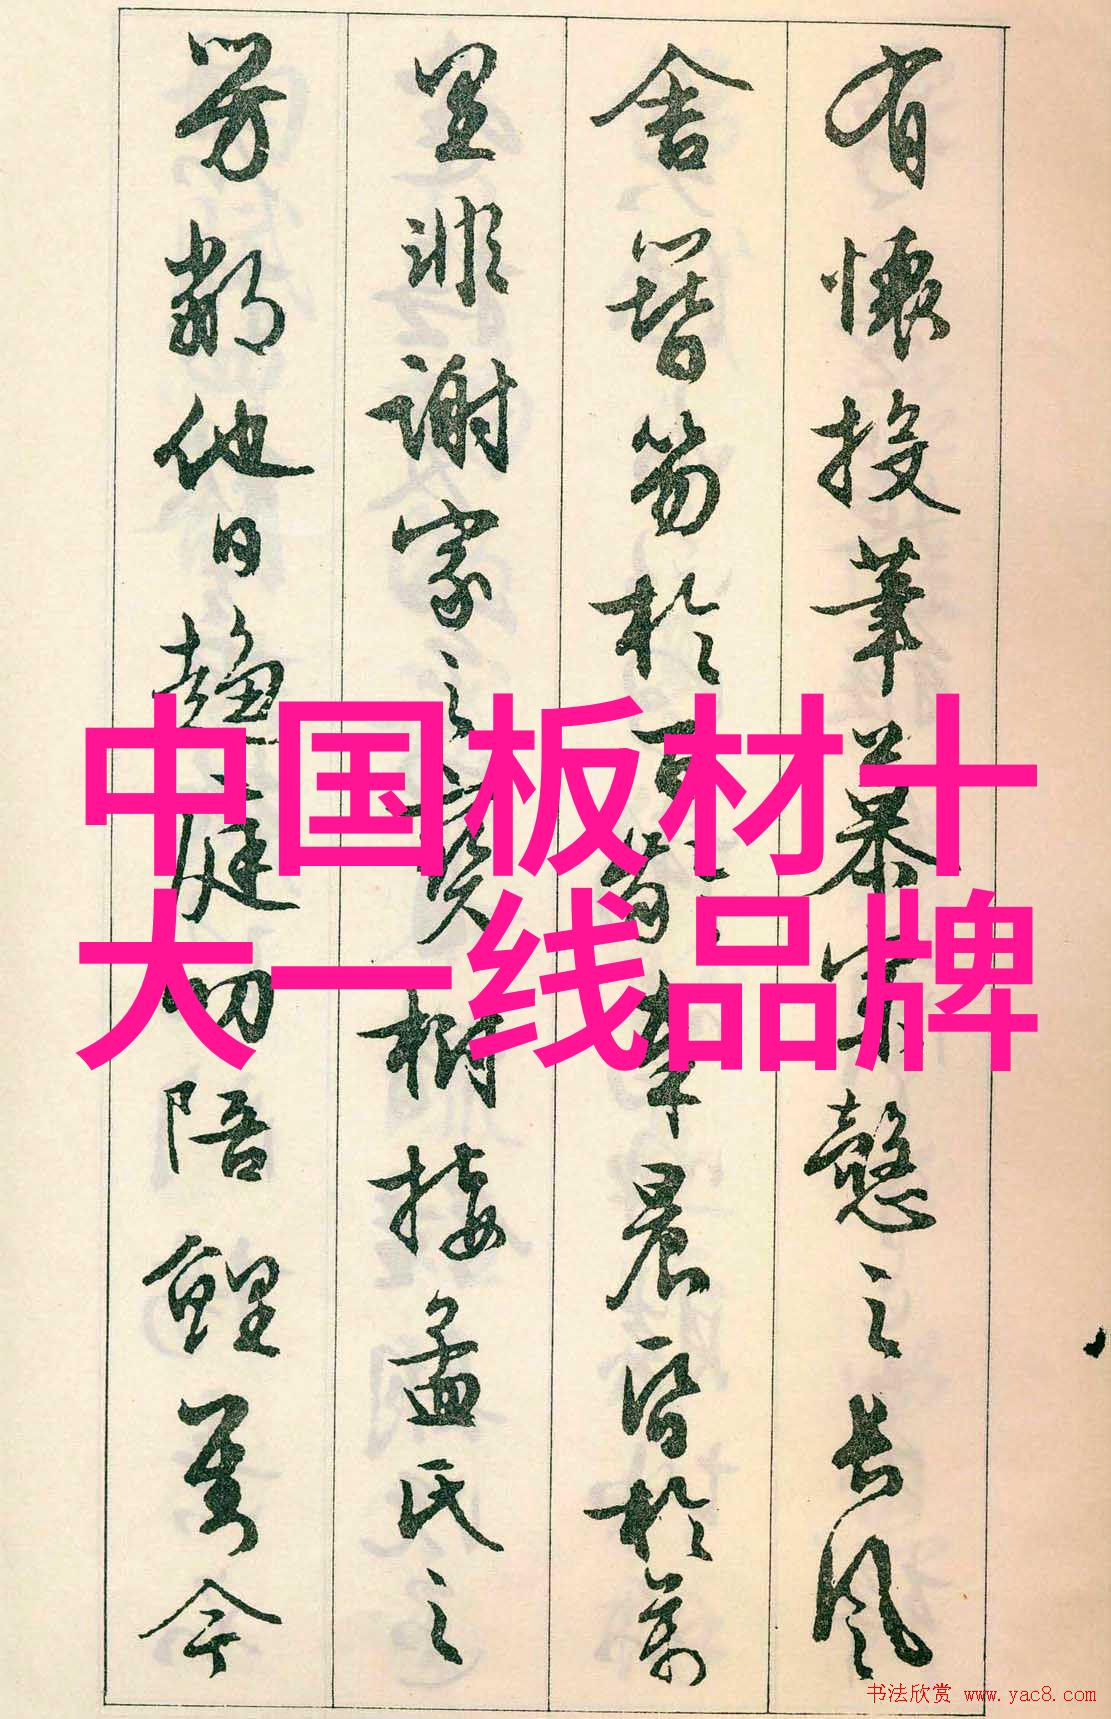 有懷投筆慕宗慤之長風
舍簪笏於百齡奉晨昏於萬
里非謝家之寶樹接孟氏之
芳鄰他日趨庭叨陪鯉對今
中国板材十
大一线品牌
书法欣赏 www.yac8.com